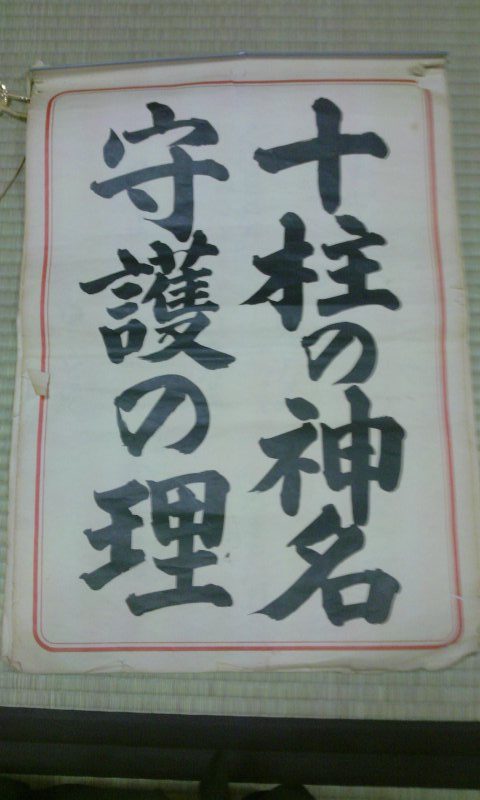 十柱の神名
守護の理